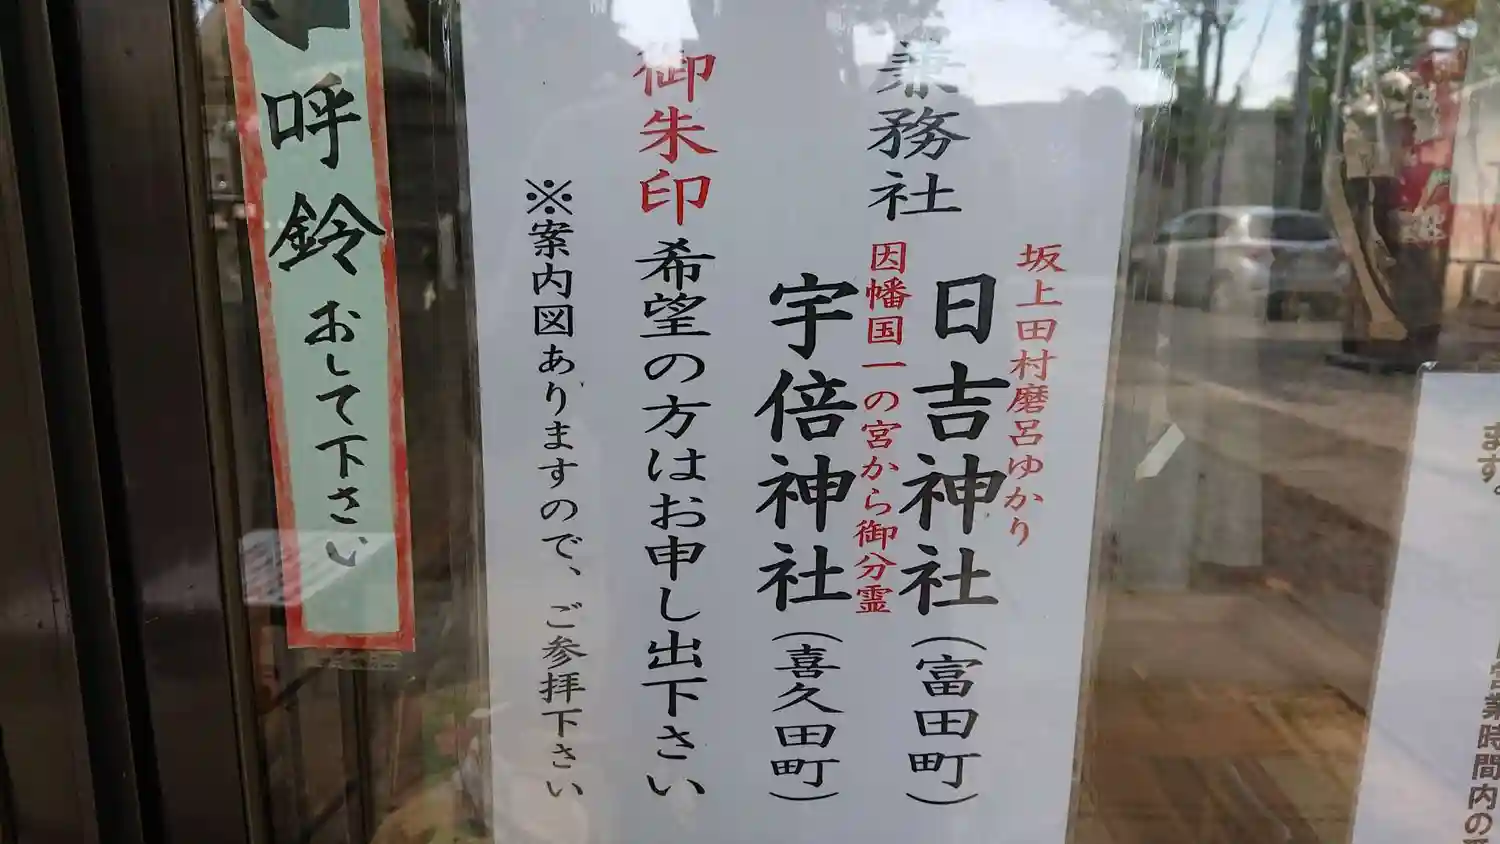 兼務社
坂上田村麿呂ゆかり
日吉神社(富田町)
因幡国一の宮から御分霊
宇倍神社(喜久田町)
御朱印希望の方はお申し出下さい
※案内図ありますので、ご参拝下さい
呼鈴おして下さい
ます。
営業時間内の